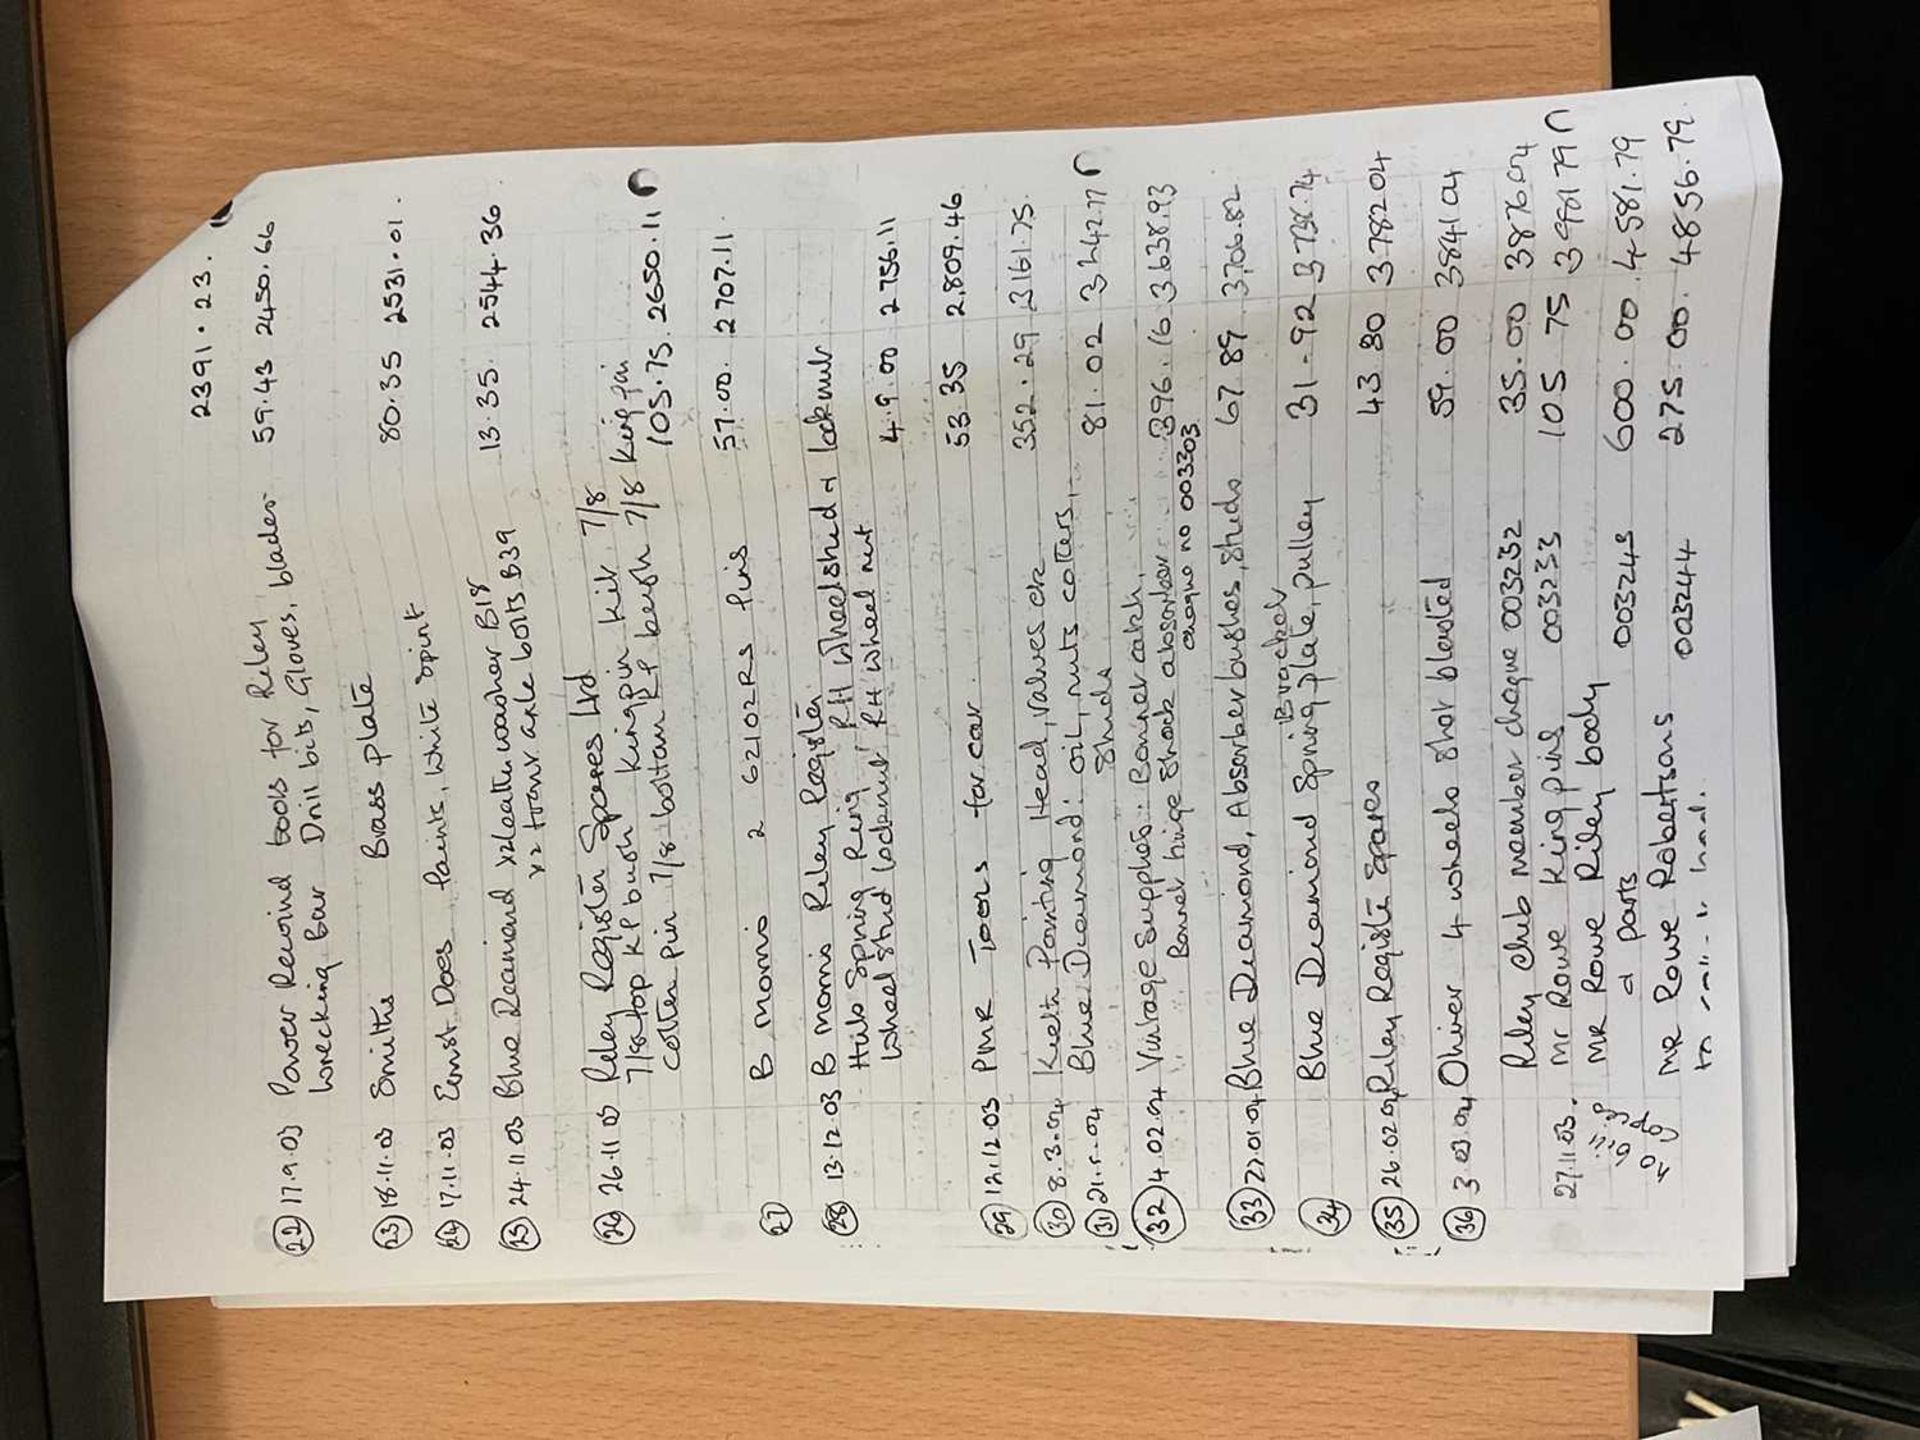 2391.23.
(22) 17.9.03 Power Rewind tools for Riley
Wrecking Bar Drill bits, Gloves, blades 59.43 2450.66
(23) 18.11.03 Smiths Brass plate 80.35 2531.01.
(24) 17.11.03 Ernst Does Paints, White spirit 13.35. 2544.36
(25) 24.11.03 Blue Diamond x2 leather washer B18
x2 front axle bolts B39
(26) 26.11.03 Riley Register Spares Ltd
7/8 top KP bush Kingpin kit 7/8
cotter pin 7/8 bottom KP bush 7/8 King pin
105.75. 2650.11
(27) B Morris 2 62102RS Pins 57.00. 2707.11
(28) 13.12.03 B Morris Riley Register
Hub Spring Ring RH Wheel stud & locknut
Wheel stud locknut RH wheel nut 49.00 2756.11
53 35 2,809.46
(29) 12.12.03 PMR Tools for car 352.29 3161.75.
(30) 8.3.04 Keith Pointing Head, Valves etc
(31) 04 Blue Diamond: oil, nuts cotters, 81.02 3242.77
Studs
(32) 4.02.04 Vintage Supplies: Bonnet catch, 396.16 3638.93
Bonnet hinge Shock absorber
cheque no 003303
(33) 27.01.04 Blue Diamond, Absorber bushes, studs 67.89 3,706.82
Bracket
(34) Blue Diamond Spring, plate, pulley 31.92 3738.74
(35) 26.02.04 Riley Register Spares 43 30 3782 04
(36) 3.03.04 Oliver 4 wheels shot blasted 59.00 3841 04
Riley Club member cheque 003232 35.00 3876 04
27.11.03. Mr Rowe King pins 003233 105 75 3981 79
MR Rowe Riley body
& parts 003243 600.00. 4581.79
MR Rowe Robertsons 003244 275.00. 4856.79.